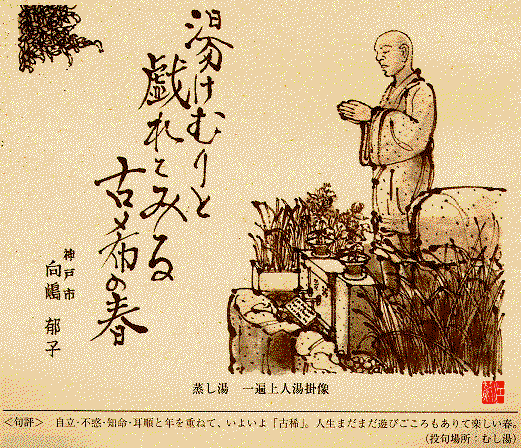 湯けむりと
戯れてみる
古希の春
神戸市
向嶋 郁子
蒸し湯 一遍上人湯掛像
<句評> 自立・不惑・知命・耳順と年を重ねて、いよいよ「古稀」。人生まだまだ遊びごころもありて楽しい春。
(投句場所:むし湯)